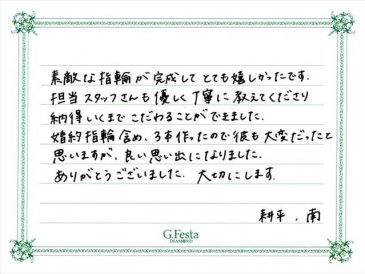 素敵な指輪が完成してとても嬉しかったです.
担当スタッフさんも優しく丁寧に教えてくださり
納得いくまでこだわることができました.
婚約指輪含め、3本作ったので彼も大変だったと
思いますが、良い思い出になりました.
ありがとうございました. 大切にします.
耕平. 南
G.Festa
DIAMOND